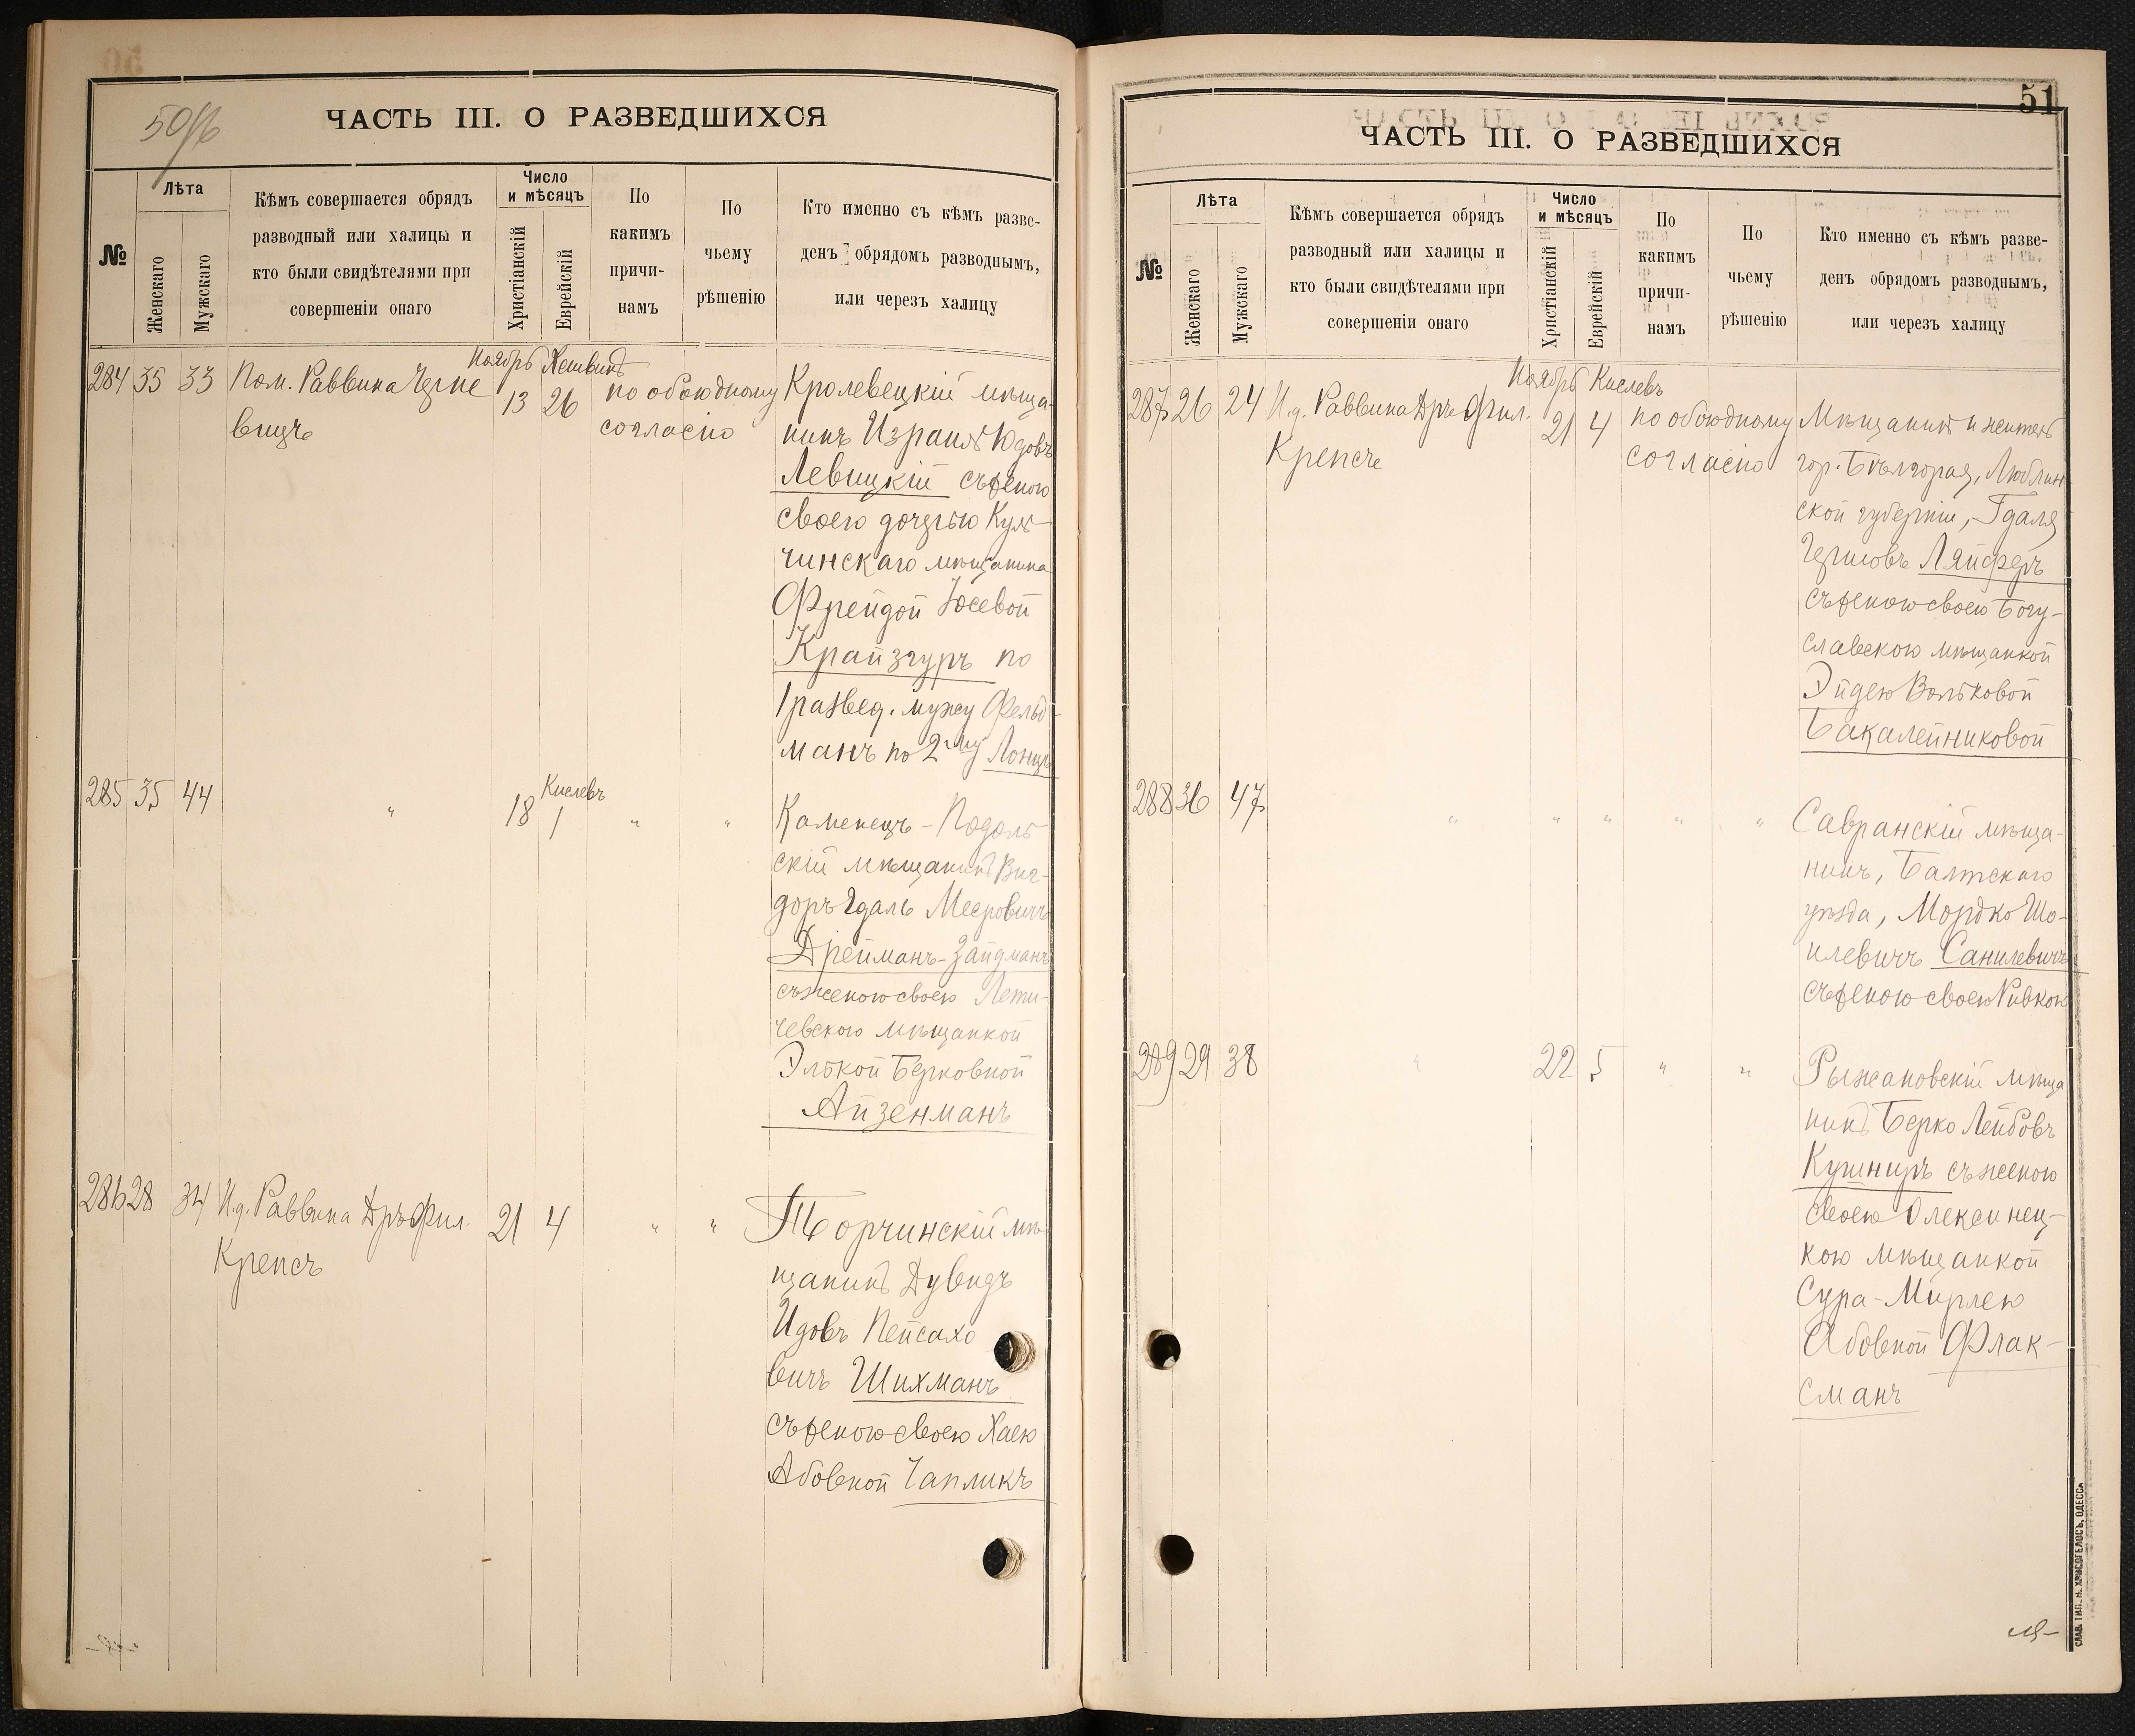 50/б
ЧАСТЬ III. О РАЗВЕДШИХСЯ
№
Лѣта
Женскаго
Мужскаго
Кѣмъ совершается обрядъ
разводный или халицы и
кто были свидѣтелями при
совершеніи онаго
Число
и мѣсяцъ
Христіанскій
Еврейскій
По
какимъ
причи-
намъ
По
чьему
рѣшенію
Кто именно съ кѣмъ разве-
денъ обрядомъ разводнымъ,
или черезъ халицу
Ноябрь Хешвинъ
284 35 33 Пом. Раввина Черне 13 26 по обоюдному Кролевецкій мѣща-
вицъ согласію нинъ Израиль Юдовъ
Левицкій съ женою
своею дочерью Куль-
чинскаго мѣщанина
Фрейдой Іосевой
Крайзгуръ по
1 развед. мужу Фельд-
манъ по 2му Лонцъ
Кислевъ
285 35 44 " 18 1 " " Каменецъ-Подоль
скій мѣщанинъ Виг-
доръ Гдаль Меeровичъ
Дрейманъ-Зайдманъ
съ женою своею Лети-
чевскою мѣщанкой
Элькой Берковной
Айзенманъ
286 28 34 И.д. Раввина Дръ Фил. 21 4 " " Торчинскій мѣ-
Крепсъ щанинъ Дувидъ
Идовъ Пейсахо
вичъ Шихманъ
съ женою своею Хаею
Абовной Чапликъ
51
ЧАСТЬ III. О РАЗВЕДШИХСЯ
№
Лѣта
Женскаго
Мужскаго
Кѣмъ совершается обрядъ
разводный или халицы и
кто были свидѣтелями при
совершеніи онаго
Число
и мѣсяцъ
Христіанскій
Еврейскій
По
какимъ
причи-
намъ
По
чьему
рѣшенію
Кто именно съ кѣмъ разве-
денъ обрядомъ разводнымъ,
или черезъ халицу
Ноябрь Кислевъ
287 26 24 И.д. Раввина Дръ Фил. 21 4 по обоюдному Мѣщанинъ и житель
Крепсъ согласію гор. Бѣлгорая, Люблин-
ской губерніи, Гдаля
Гершовъ Ляйферъ
съ женою своею Богу-
славскою мѣщанкой
Эйдею Вольковой
Бакалейниковой
288 36 47 " " " " " Савранскій мѣща-
нинъ, Балтскаго
уѣзда, Мордко Шо-
илевичъ Санилевичъ
съ женою своею Ривкою
289 29 38 " 22 5 " " Рыжановскій мѣща
нинъ Берко Лейбовъ
Кушниръ съ женою
своею Олексинец-
кою мѣщанкой
Сура-Мирлею
Абовной Флак-
сманъ
СЛАВ. ТИП. Н. ХРИСОГЕЛОСЪ, ОДЕССА